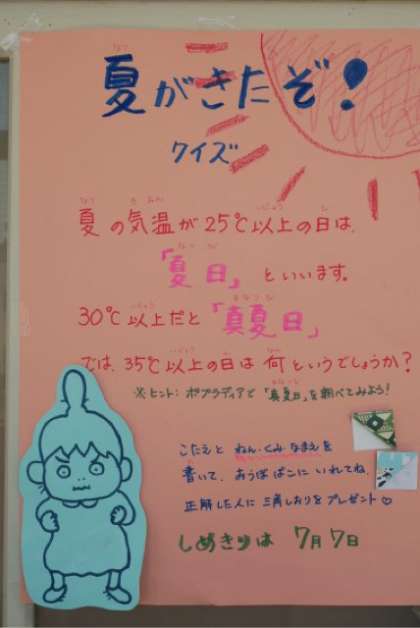 夏がきたぞ！
クイズ
夏の気温が25℃以上の日は、
「夏日」といいます。
30℃以上だと「真夏日」
では、35℃以上の日は何というでしょうか？
※ヒント：ポプラディアで「真夏日」を調べてみよう！
こたえと ねん・くみ・なまえを
書いて、おうぼばこにいれてね。
正解した人に三角しおりをプレゼント♡
しめきりは 7月7日